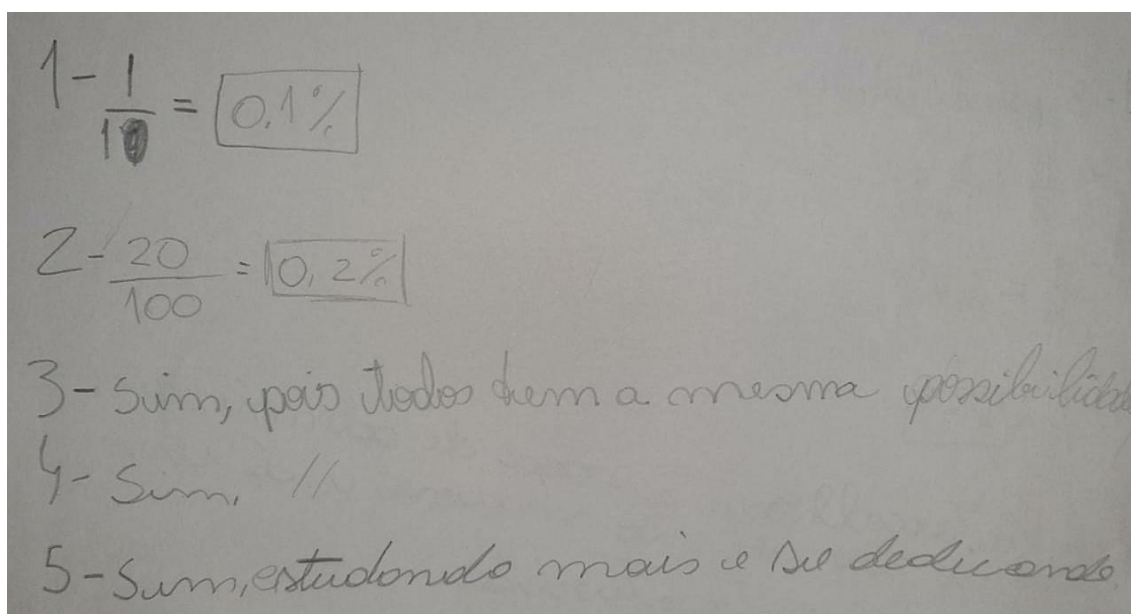 1 - 1/10 = 0,1%
2 - 20/100 = 0,2%
3 - Sim, pois todos tem a mesma possibilidade
4 - Sim, //
5 - Sim, estudando mais e se dedicando